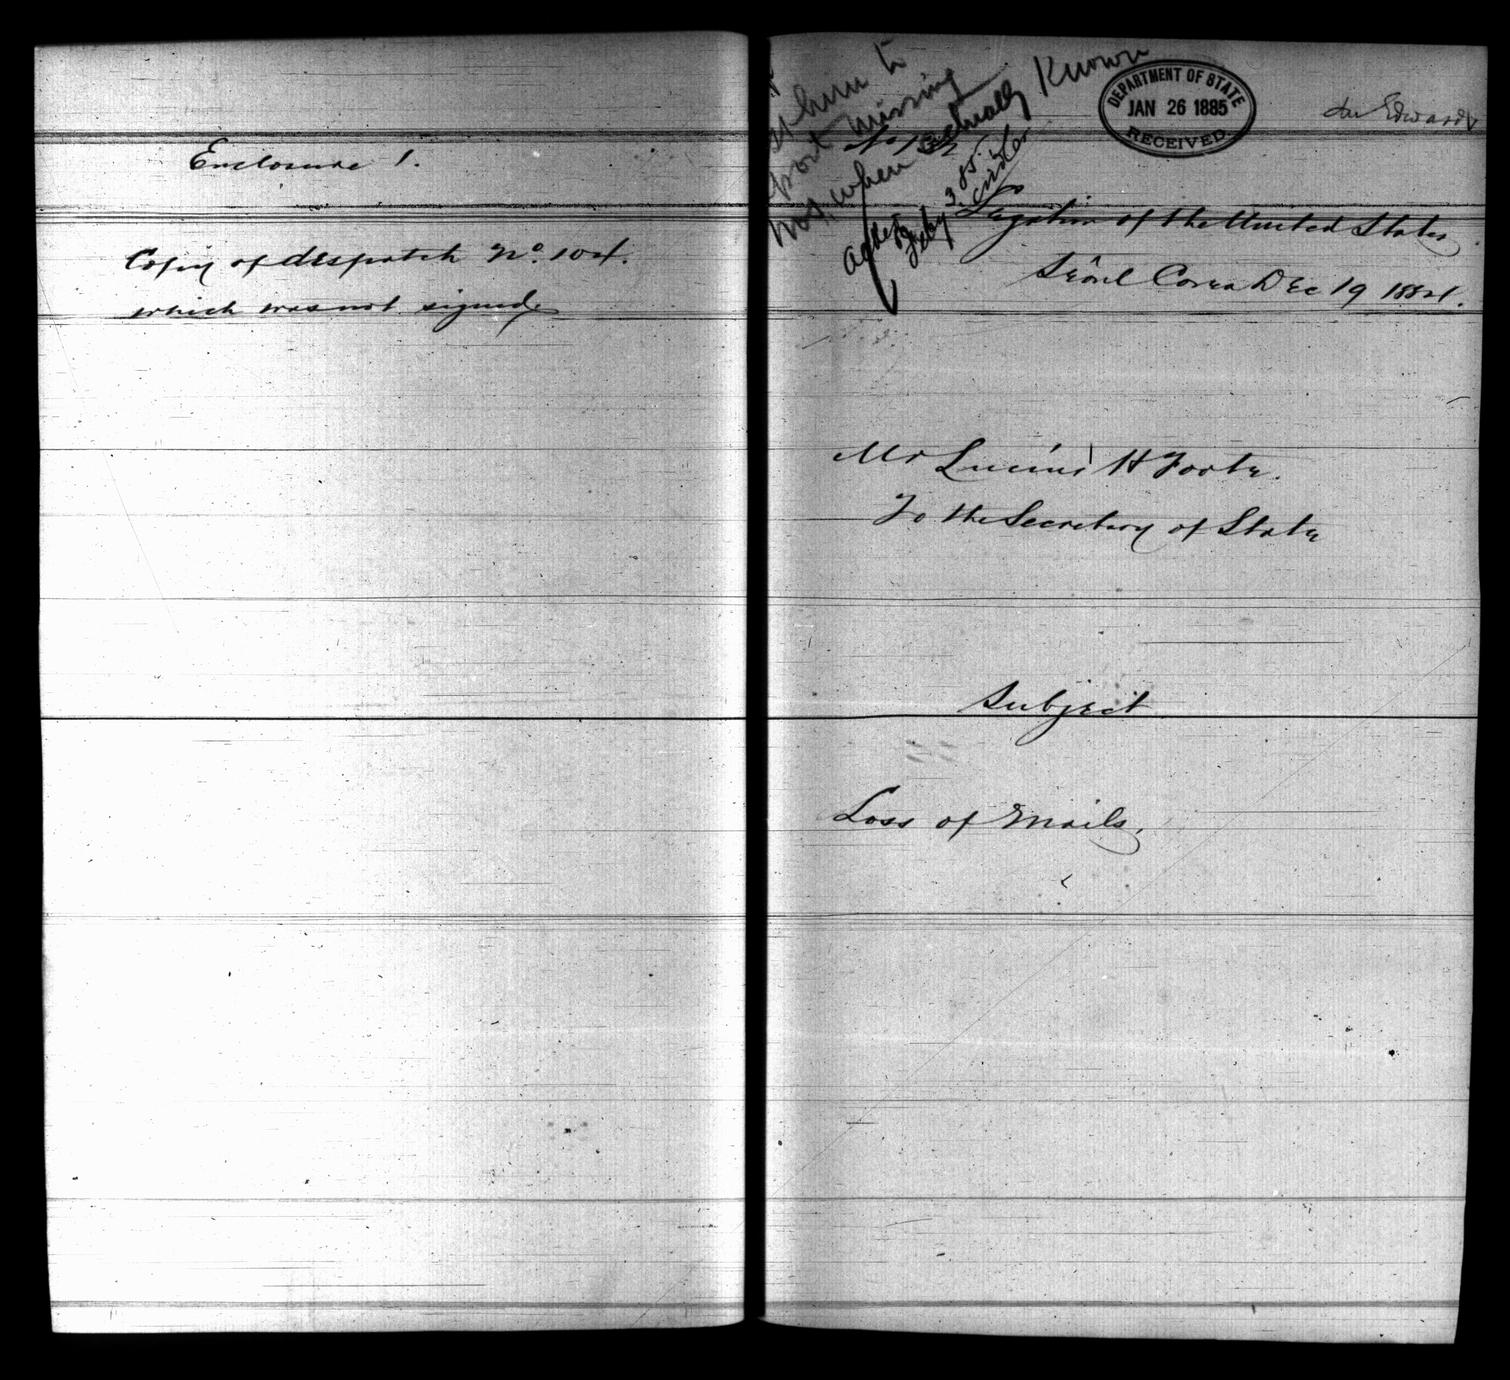 Enclosure 1.
Copy of despatch No. 104.
which was not signed
him to
missing
when actually Known
DEPARTMENT OF STATE
JAN 26 1885
RECEIVED
Mr Edwards
Legation of the United States
Séoul Corea Dec 19 1884.
Mr Lucius H Foote.
To the Secretary of State
Subject
Loss of Mails.